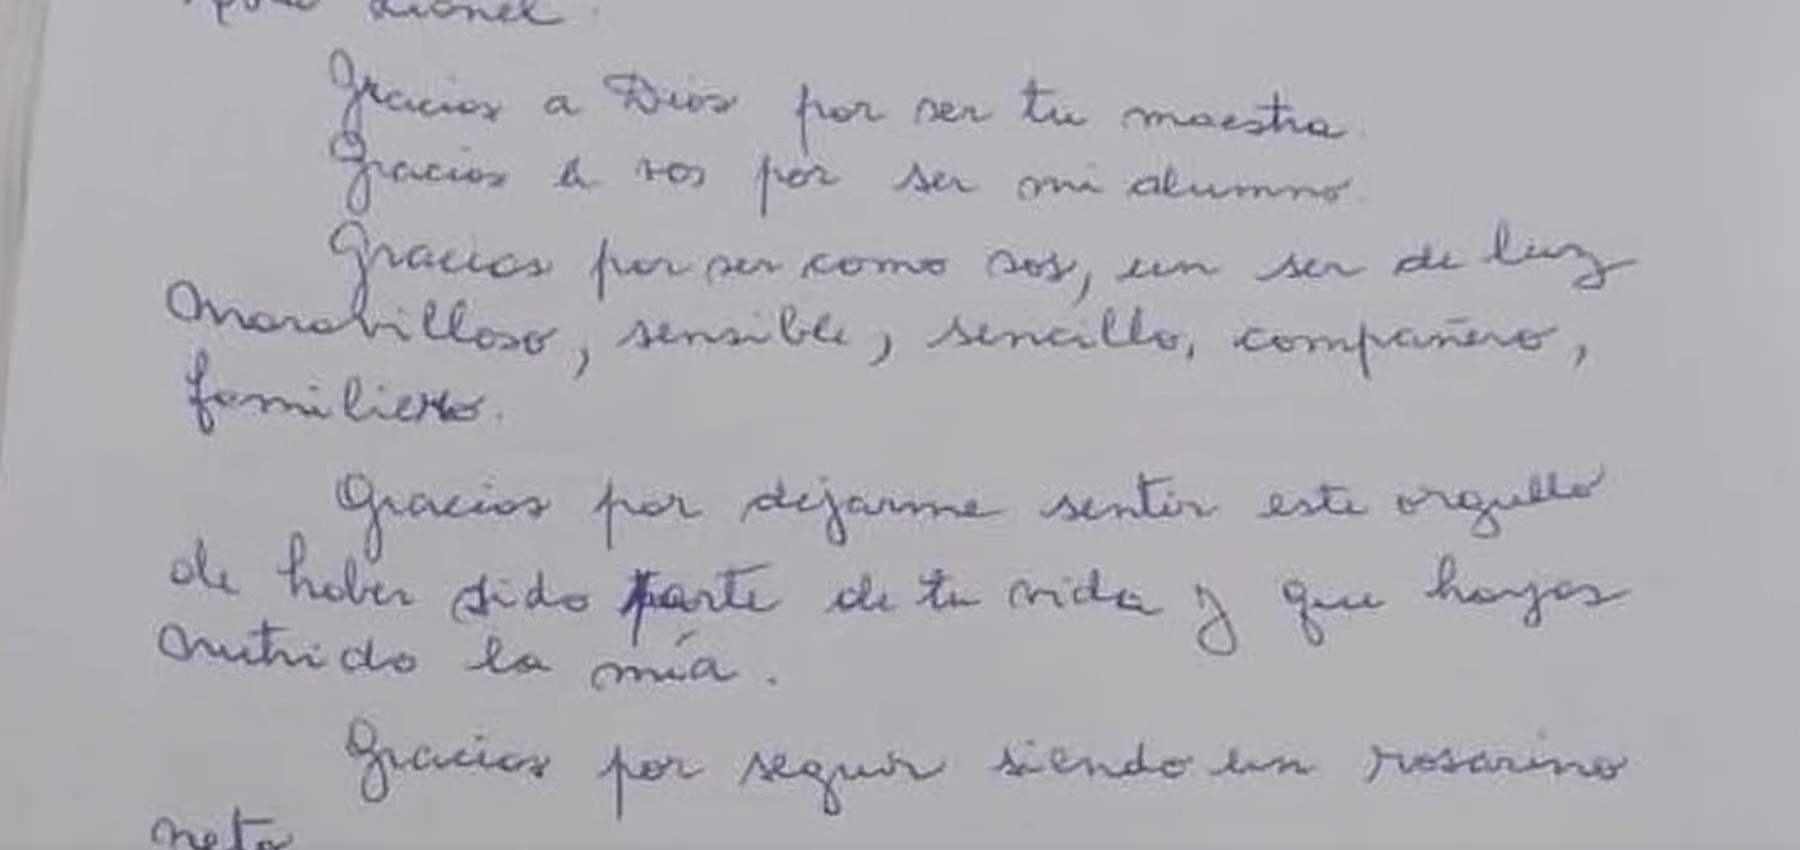 Lionel
Gracias a Dios por ser tu maestra.
Gracias a vos por ser mi alumno.
Gracias por ser como sos, un ser de luz
maravilloso, sensible, sencillo, compañero,
familiero.
Gracias por dejarme sentir este orgullo
de haber sido parte de tu vida y que hayas
nutrido la mía.
Gracias por seguir siendo un rosarino
neto